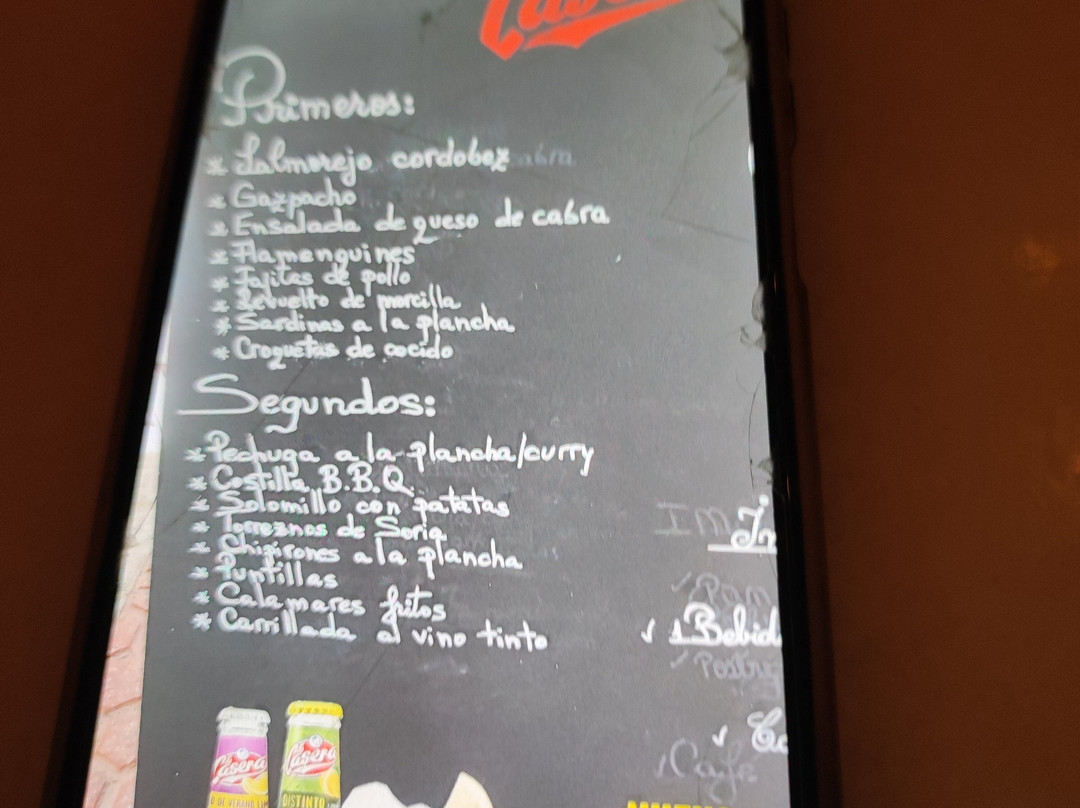 Primeros:
* Salmorejo cordobez
* Gazpacho
* Ensalada de queso de cabra
* Flamenguines
* Fajitas de pollo
* Revuelto de morcilla
* Sardinas a la plancha
* Croquetas de cocido
Segundos:
* Pechuga a la plancha/curry
* Costilla B.B.Q.
* Solomillo con patatas
* Torreznos de Soria
* Chipirones a la plancha
* Puntillas
* Calamares fritos
* Carrillada al vino tinto
In
Pan
✓ 1 Bebid
Postre
Café
Casera
Casera
DE VERANO
DISTINTO